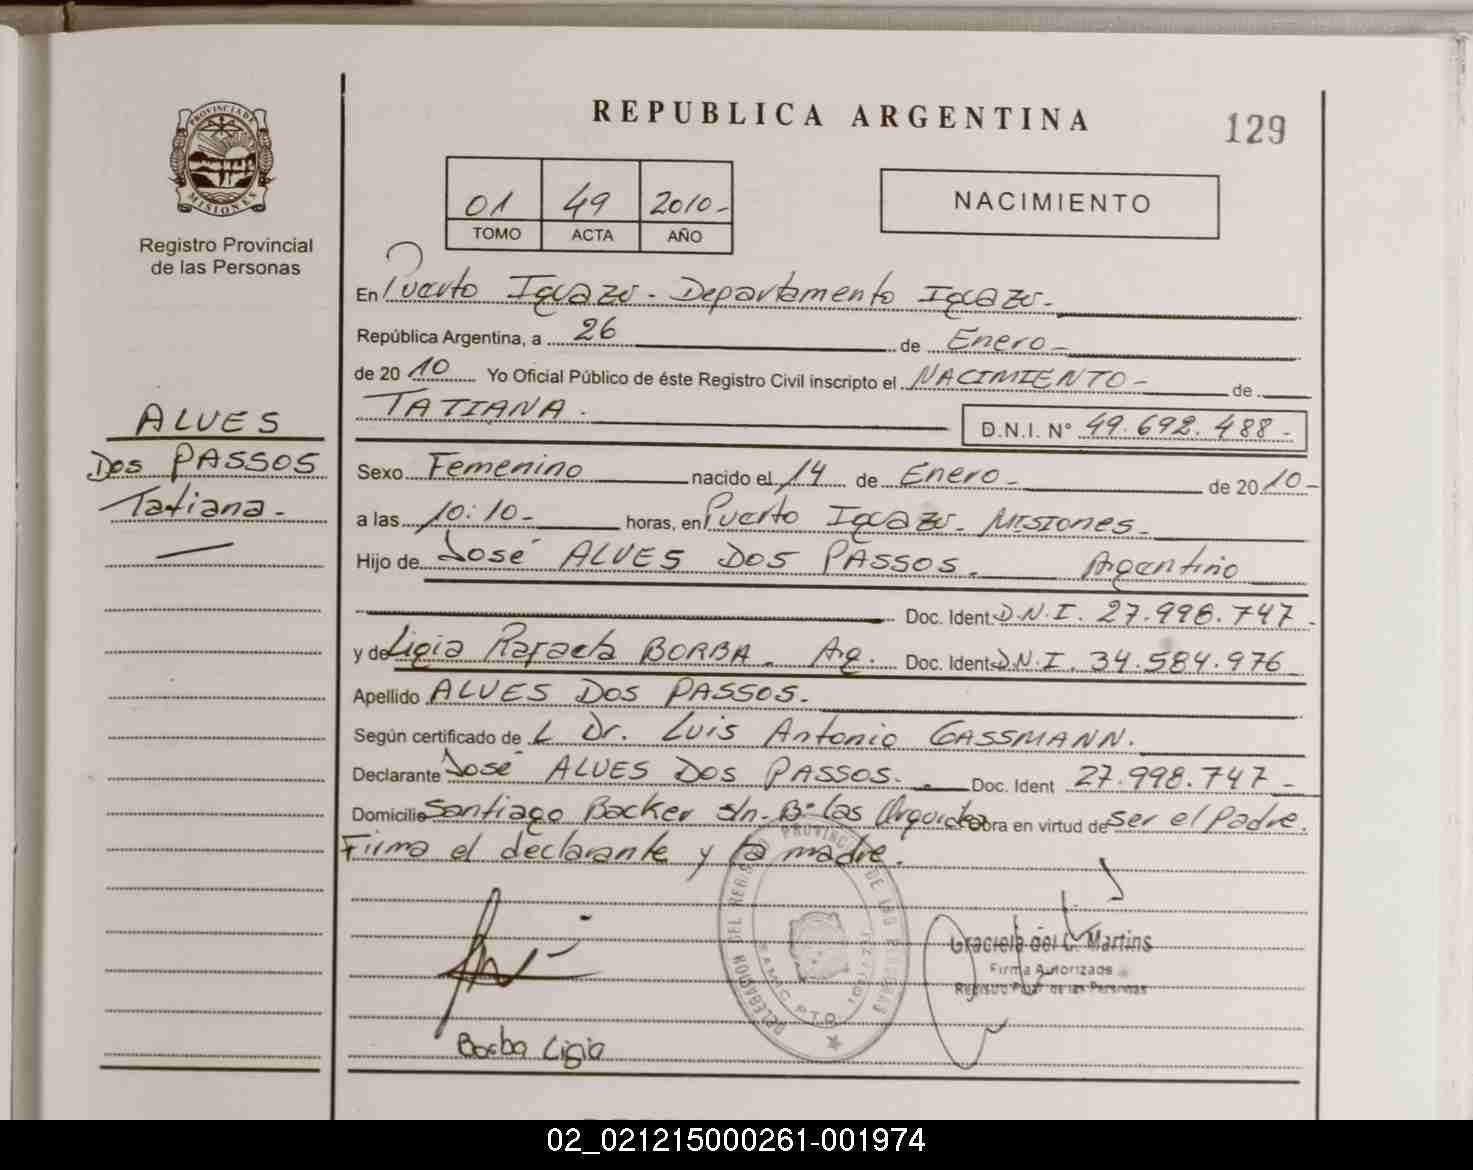 PROVINCIA DE
MISIONES
Registro Provincial
de las Personas
ALVES
DOS PASSOS
Tatiana -
REPUBLICA ARGENTINA
129
01 49 2010-
TOMO ACTA AÑO
NACIMIENTO
En Puerto Iguazu - Departamento Iguazu -
República Argentina, a 26 de Enero -
de 20 10 Yo Oficial Público de éste Registro Civil inscripto el NACIMIENTO - de
TATIANA. D.N.I. N° 49.692.488-
Sexo Femenino nacido el 14 de Enero - de 20 10 -
a las 10:10- horas, en Puerto Iguazu - MISIONES -
Hijo de José ALVES DOS PASSOS. Argentino
Doc. Ident. D.N.I. 27.998.747-
y de Ligia Rafaela BORBA. Arg. Doc. Ident. D.N.I. 34.584.976
Apellido ALVES DOS PASSOS.
Según certificado de L Dr. Luis Antonio GASSMANN.
Declarante José ALVES DOS PASSOS. Doc. Ident 27.998.747-
Domicilio Santiago Backer s/n- B° las Orquideas Obra en virtud de ser el Padre.
Firma el declarante y la madre.
Graciela del C. Martins
Firma Autorizada
Registro Prov. de las Personas
Borba Ligia
02_021215000261-001974